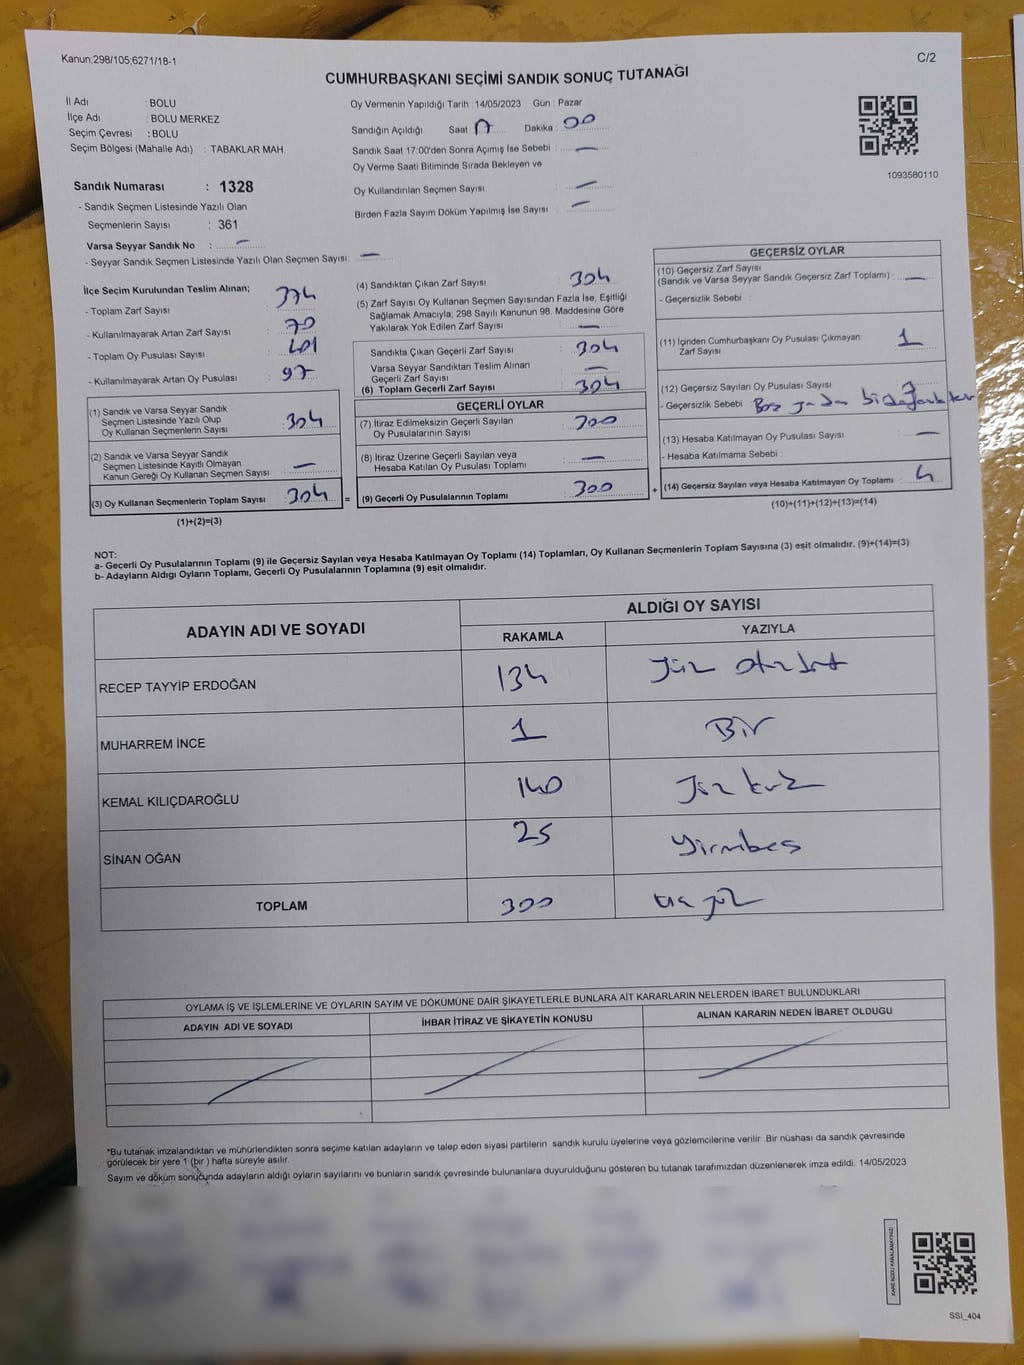 Kanun;298/105;6271/18-1
C/2
CUMHURBAŞKANI SEÇİMİ SANDIK SONUÇ TUTANAĞI
İl Adı : BOLU
İlçe Adı : BOLU MERKEZ
Seçim Çevresi : BOLU
Seçim Bölgesi (Mahalle Adı) : TABAKLAR MAH.
Oy Vermenin Yapıldığı Tarih : 14/05/2023 Gün : Pazar
Sandığın Açıldığı Saat 17 Dakika : 00
Sandık Saat 17:00'den Sonra Açımış İse Sebebi : —
Oy Verme Saati Bitiminde Sırada Bekleyen ve
Oy Kullandırılan Seçmen Sayısı : —
Birden Fazla Sayım Döküm Yapılmış İse Sayısı : —
1093580110
Sandık Numarası : 1328
- Sandık Seçmen Listesinde Yazılı Olan
Seçmenlerin Sayısı : 361
Varsa Seyyar Sandık No : —
- Seyyar Sandık Seçmen Listesinde Yazılı Olan Seçmen Sayısı: —
İlçe Seçim Kurulundan Teslim Alınan;
- Toplam Zarf Sayısı : 374
- Kullanılmayarak Artan Zarf Sayısı : 70
- Toplam Oy Pusulası Sayısı : 401
- Kullanılmayarak Artan Oy Pusulası : 97
(1) Sandık ve Varsa Seyyar Sandık
Seçmen Listesinde Yazılı Olup
Oy Kullanan Seçmenlerin Sayısı : 304
(2) Sandık ve Varsa Seyyar Sandık
Seçmen Listesinde Kayıtlı Olmayan
Kanun Gereği Oy Kullanan Seçmen Sayısı : —
(3) Oy Kullanan Seçmenlerin Toplam Sayısı : 304 =
(1)+(2)=(3)
(4) Sandıktan Çıkan Zarf Sayısı : 304
(5) Zarf Sayısı Oy Kullanan Seçmen Sayısından Fazla İse, Eşitliği
Sağlamak Amacıyla; 298 Sayılı Kanunun 98. Maddesine Göre
Yakılarak Yok Edilen Zarf Sayısı : —
Sandıkta Çıkan Geçerli Zarf Sayısı : 304
Varsa Seyyar Sandıktan Teslim Alınan
Geçerli Zarf Sayısı : —
(6) Toplam Geçerli Zarf Sayısı : 304
GEÇERLİ OYLAR
(7) İtiraz Edilmeksizin Geçerli Sayılan
Oy Pusulalarının Sayısı : 300
(8) İtiraz Üzerine Geçerli Sayılan veya
Hesaba Katılan Oy Pusulası Toplamı : —
(9) Geçerli Oy Pusulalarının Toplamı : 300 +
GEÇERSİZ OYLAR
(10) Geçersiz Zarf Sayısı
(Sandık ve Varsa Seyyar Sandık Geçersiz Zarf Toplamı) : —
- Geçersizlik Sebebi :
(11) İçinden Cumhurbaşkanı Oy Pusulası Çıkmayan
Zarf Sayısı : 1
(12) Geçersiz Sayılan Oy Pusulası Sayısı : 3
- Geçersizlik Sebebi
(13) Hesaba Katılmayan Oy Pusulası Sayısı : —
- Hesaba Katılmama Sebebi :
(14) Geçersiz Sayılan veya Hesaba Katılmayan Oy Toplamı : 4
(10)+(11)+(12)+(13)=(14)
NOT:
a- Geçerli Oy Pusulalarının Toplamı (9) ile Geçersiz Sayılan veya Hesaba Katılmayan Oy Toplamı (14) Toplamları, Oy Kullanan Seçmenlerin Toplam Sayısına (3) eşit olmalıdır. (9)+(14)=(3)
b- Adayların Aldığı Oyların Toplamı, Geçerli Oy Pusulalarının Toplamına (9) eşit olmalıdır.
ADAYIN ADI VE SOYADI
ALDIĞI OY SAYISI
RAKAMLA YAZIYLA
RECEP TAYYİP ERDOĞAN 134 Yüz otuzdört
MUHARREM İNCE 1 Bir
KEMAL KILIÇDAROĞLU 140 Yüz kırk
SİNAN OĞAN 25 Yirmibeş
TOPLAM 300 üç yüz
OYLAMA İŞ VE İŞLEMLERİNE VE OYLARIN SAYIM VE DÖKÜMÜNE DAİR ŞİKAYETLERLE BUNLARA AİT KARARLARIN NELERDEN İBARET BULUNDUKLARI
ADAYIN ADI VE SOYADI İHBAR İTİRAZ VE ŞİKAYETİN KONUSU ALINAN KARARIN NEDEN İBARET OLDUĞU
*Bu tutanak imzalandıktan ve mühürlendikten sonra seçime katılan adayların ve talep eden siyasi partilerin sandık kurulu üyelerine veya gözlemcilerine verilir Bir nüshası da sandık çevresinde
görülecek bir yere 1 (bir) hafta süreyle asılır.
Sayım ve döküm sonucunda adayların aldığı oyların sayılarını ve bunların sandık çevresinde bulunanlara duyurulduğunu gösteren bu tutanak tarafımızdan düzenlenerek imza edildi. 14/05/2023
KARE KODU KARALAMAYINIZ!
SSI_404